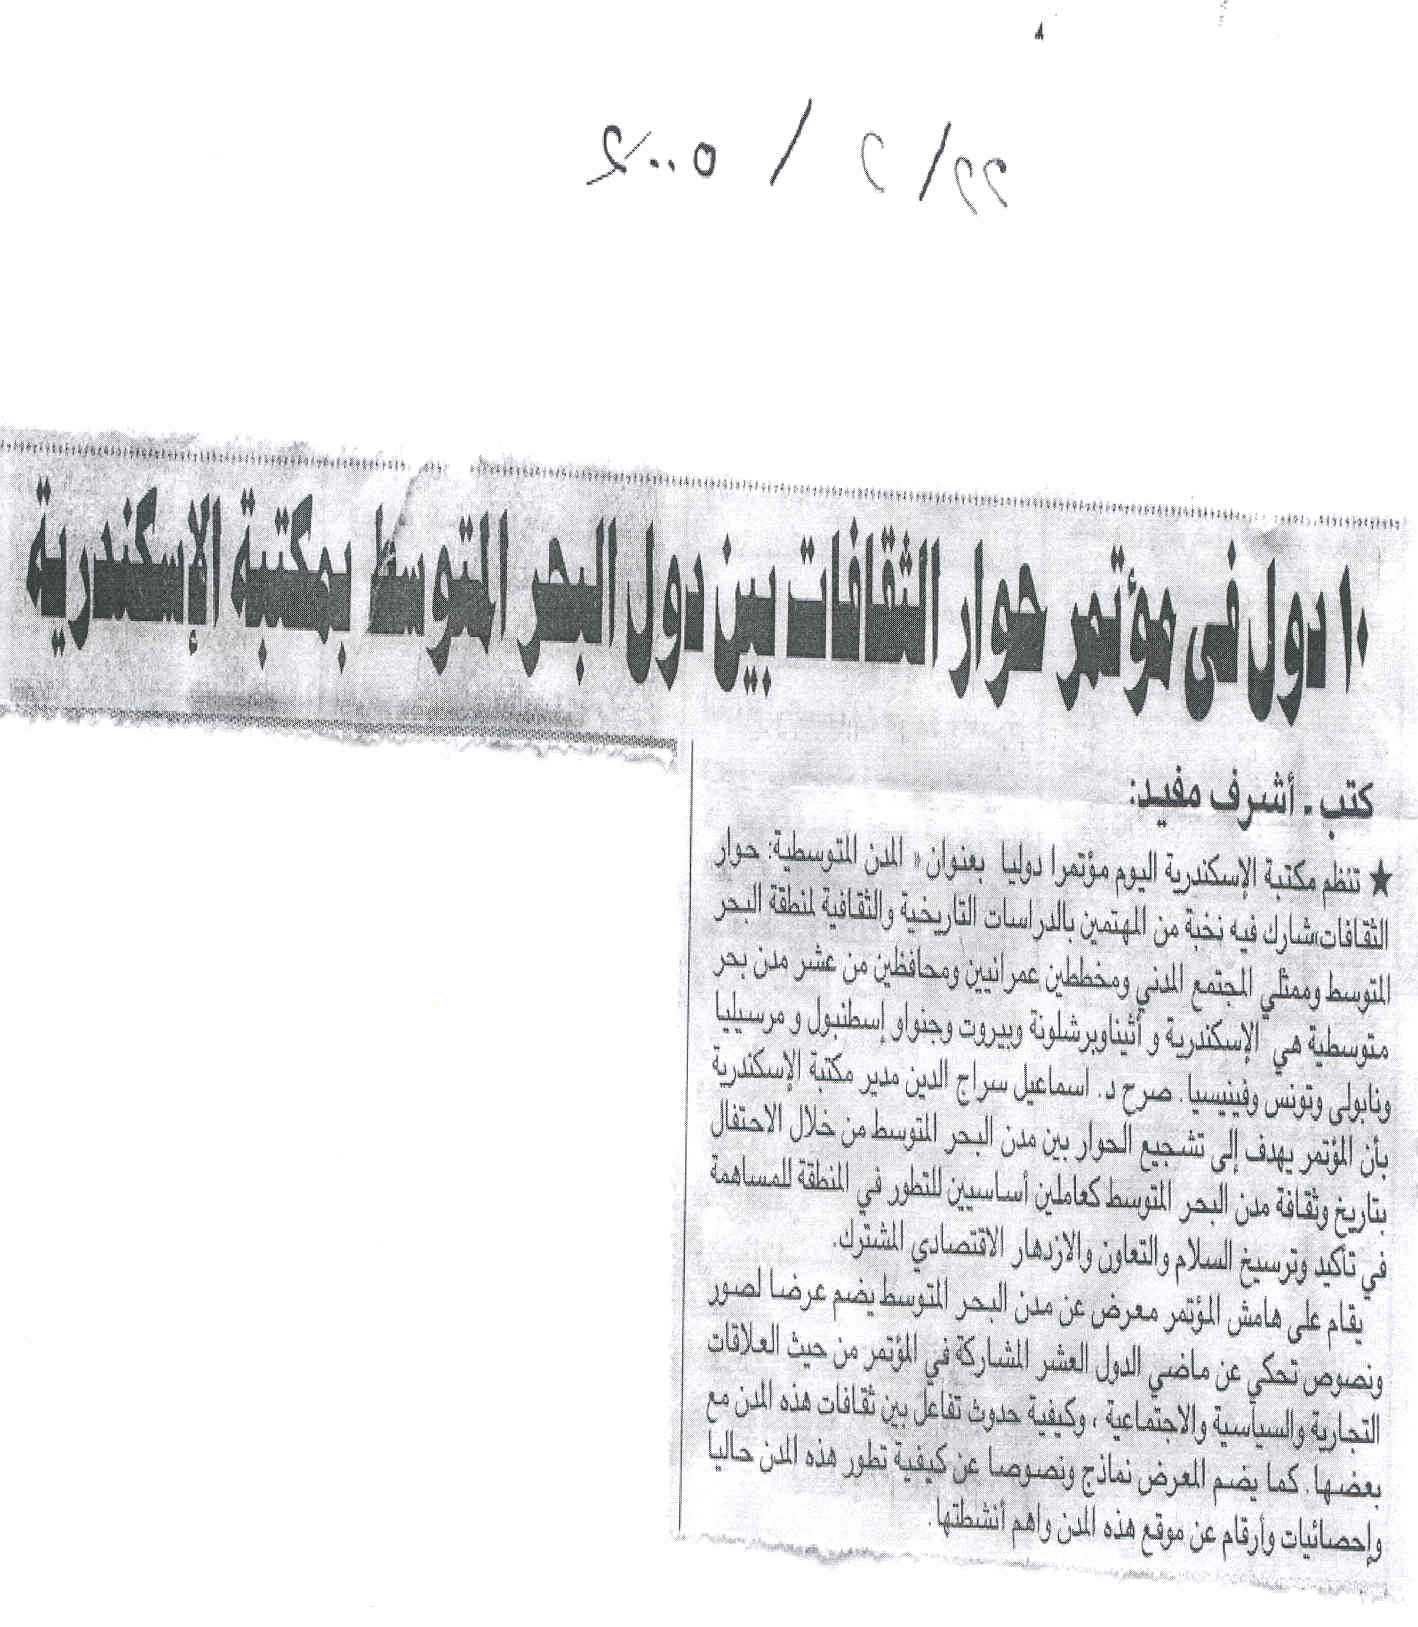 ٢٢/٢/٢٠٠٥
١٠ دول فى مؤتمر حوار الثقافات بين دول البحر المتوسط بمكتبة الإسكندرية
كتب . أشرف مفيد:
★ تنظم مكتبة الإسكندرية اليوم مؤتمرا دوليا بعنوان « المدن المتوسطية: حوار
الثقافات»شارك فيه نخبة من المهتمين بالدراسات التاريخية والثقافية لمنطقة البحر
المتوسط وممثلي المجتمع المدني ومخططين عمرانيين ومحافظين من عشر مدن بحر
متوسطية هي الإسكندرية و أثيناوبرشلونة وبيروت وجنواو إسطنبول و مرسيليا
ونابولى وتونس وفينيسيا. صرح د. اسماعيل سراج الدين مدير مكتبة الإسكندرية
بأن المؤتمر يهدف إلى تشجيع الحوار بين مدن البحر المتوسط من خلال الاحتفال
بتاريخ وثقافة مدن البحر المتوسط كعاملين أساسيين للتطور في المنطقة للمساهمة
في تأكيد وترسيخ السلام والتعاون والازدهار الاقتصادي المشترك.
يقام على هامش المؤتمر معرض عن مدن البحر المتوسط يضم عرضا لصور
ونصوص تحكي عن ماضي الدول العشر المشاركة في المؤتمر من حيث العلاقات
التجارية والسياسية والاجتماعية ، وكيفية حدوث تفاعل بين ثقافات هذه المدن مع
بعضها. كما يضم المعرض نماذج ونصوصا عن كيفية تطور هذه المدن حاليا
وإحصائيات وأرقام عن موقع هذه المدن واهم أنشطتها.